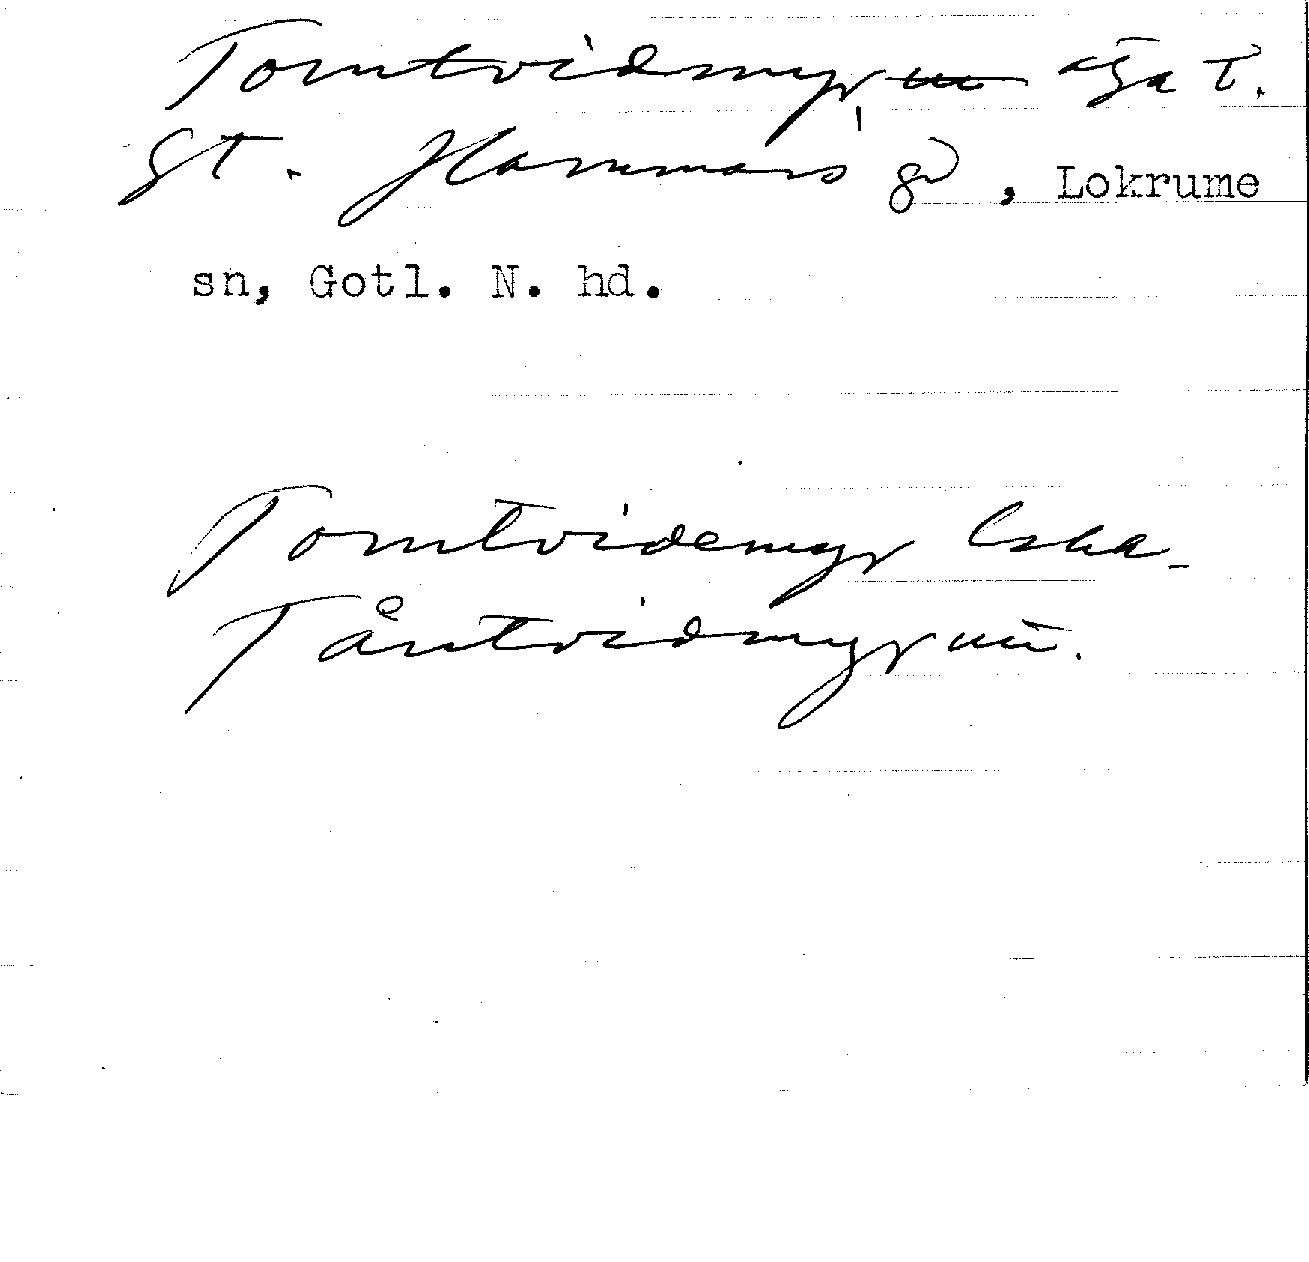 Tomtvidmyr, äga t.
St. Hammars gd, Lokrume
sn, Gotl. N. hd.
Tomtvidemyr
Tåntvidmyrui.